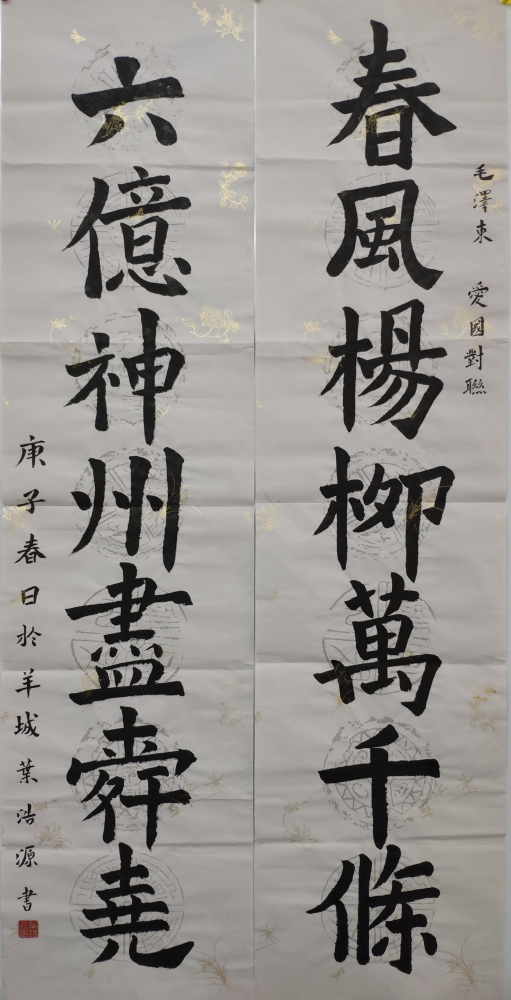 毛澤東 愛國對聯
春風楊柳萬千條
六億神州盡舜堯
庚子春日於羊城葉浩源书